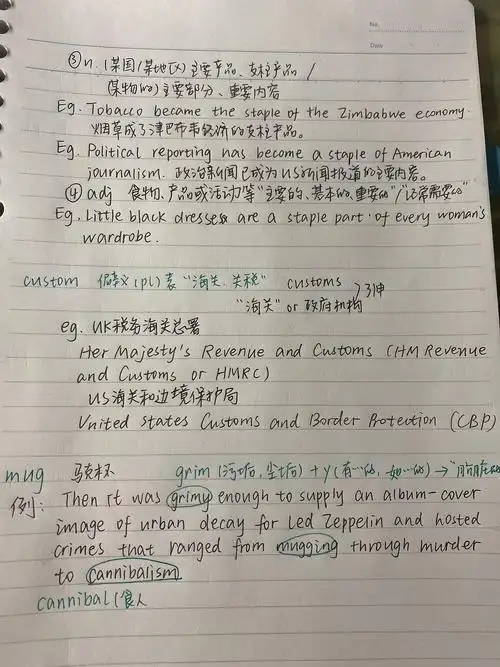 No.
Date
③ n. (某国/某地区) 主要产品、支柱产品 /
(某物的) 主要部分、重要内容
Eg. Tobacco became the staple of the Zimbabwe economy.
烟草成了津巴布韦经济的支柱产品。
Eg. Political reporting has become a staple of American
journalism. 政治新闻已成为US新闻报道的主要内容。
④ adj 食物、产品或活动等 "主要的、基本的、重要的"/"经常需要的"
Eg. Little black dresses are a staple part of every woman's
wardrobe.
custom 偏义 (pl) 表 "海关、关税" customs
"海关" or 政府机构 引申
eg. UK税务海关总署
Her Majesty's Revenue and Customs (HM Revenue
and Customs or HMRC)
US海关和边境保护局
United States Customs and Border Protection (CBP)
mug 马克杯 grim (污垢, 尘垢) + y (有…的, 如…的) → "肮脏的
例: Then it was grimy enough to supply an album-cover
image of urban decay for Led Zeppelin and hosted
crimes that ranged from mugging through murder
to cannibalism.
cannibal (食人